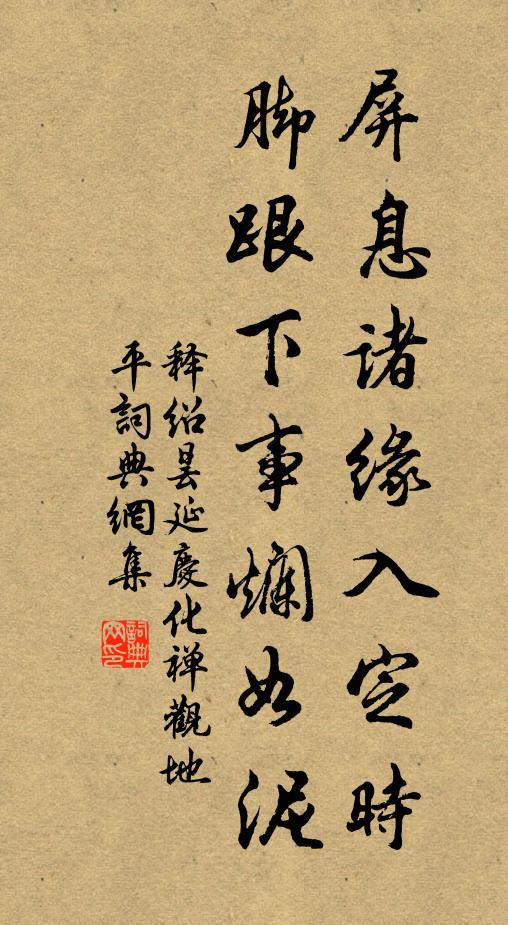 屏息諸緣入定時
脚跟下事爛如泥
释紹曇延慶化禅觀地
平詞典網集
詞典網印